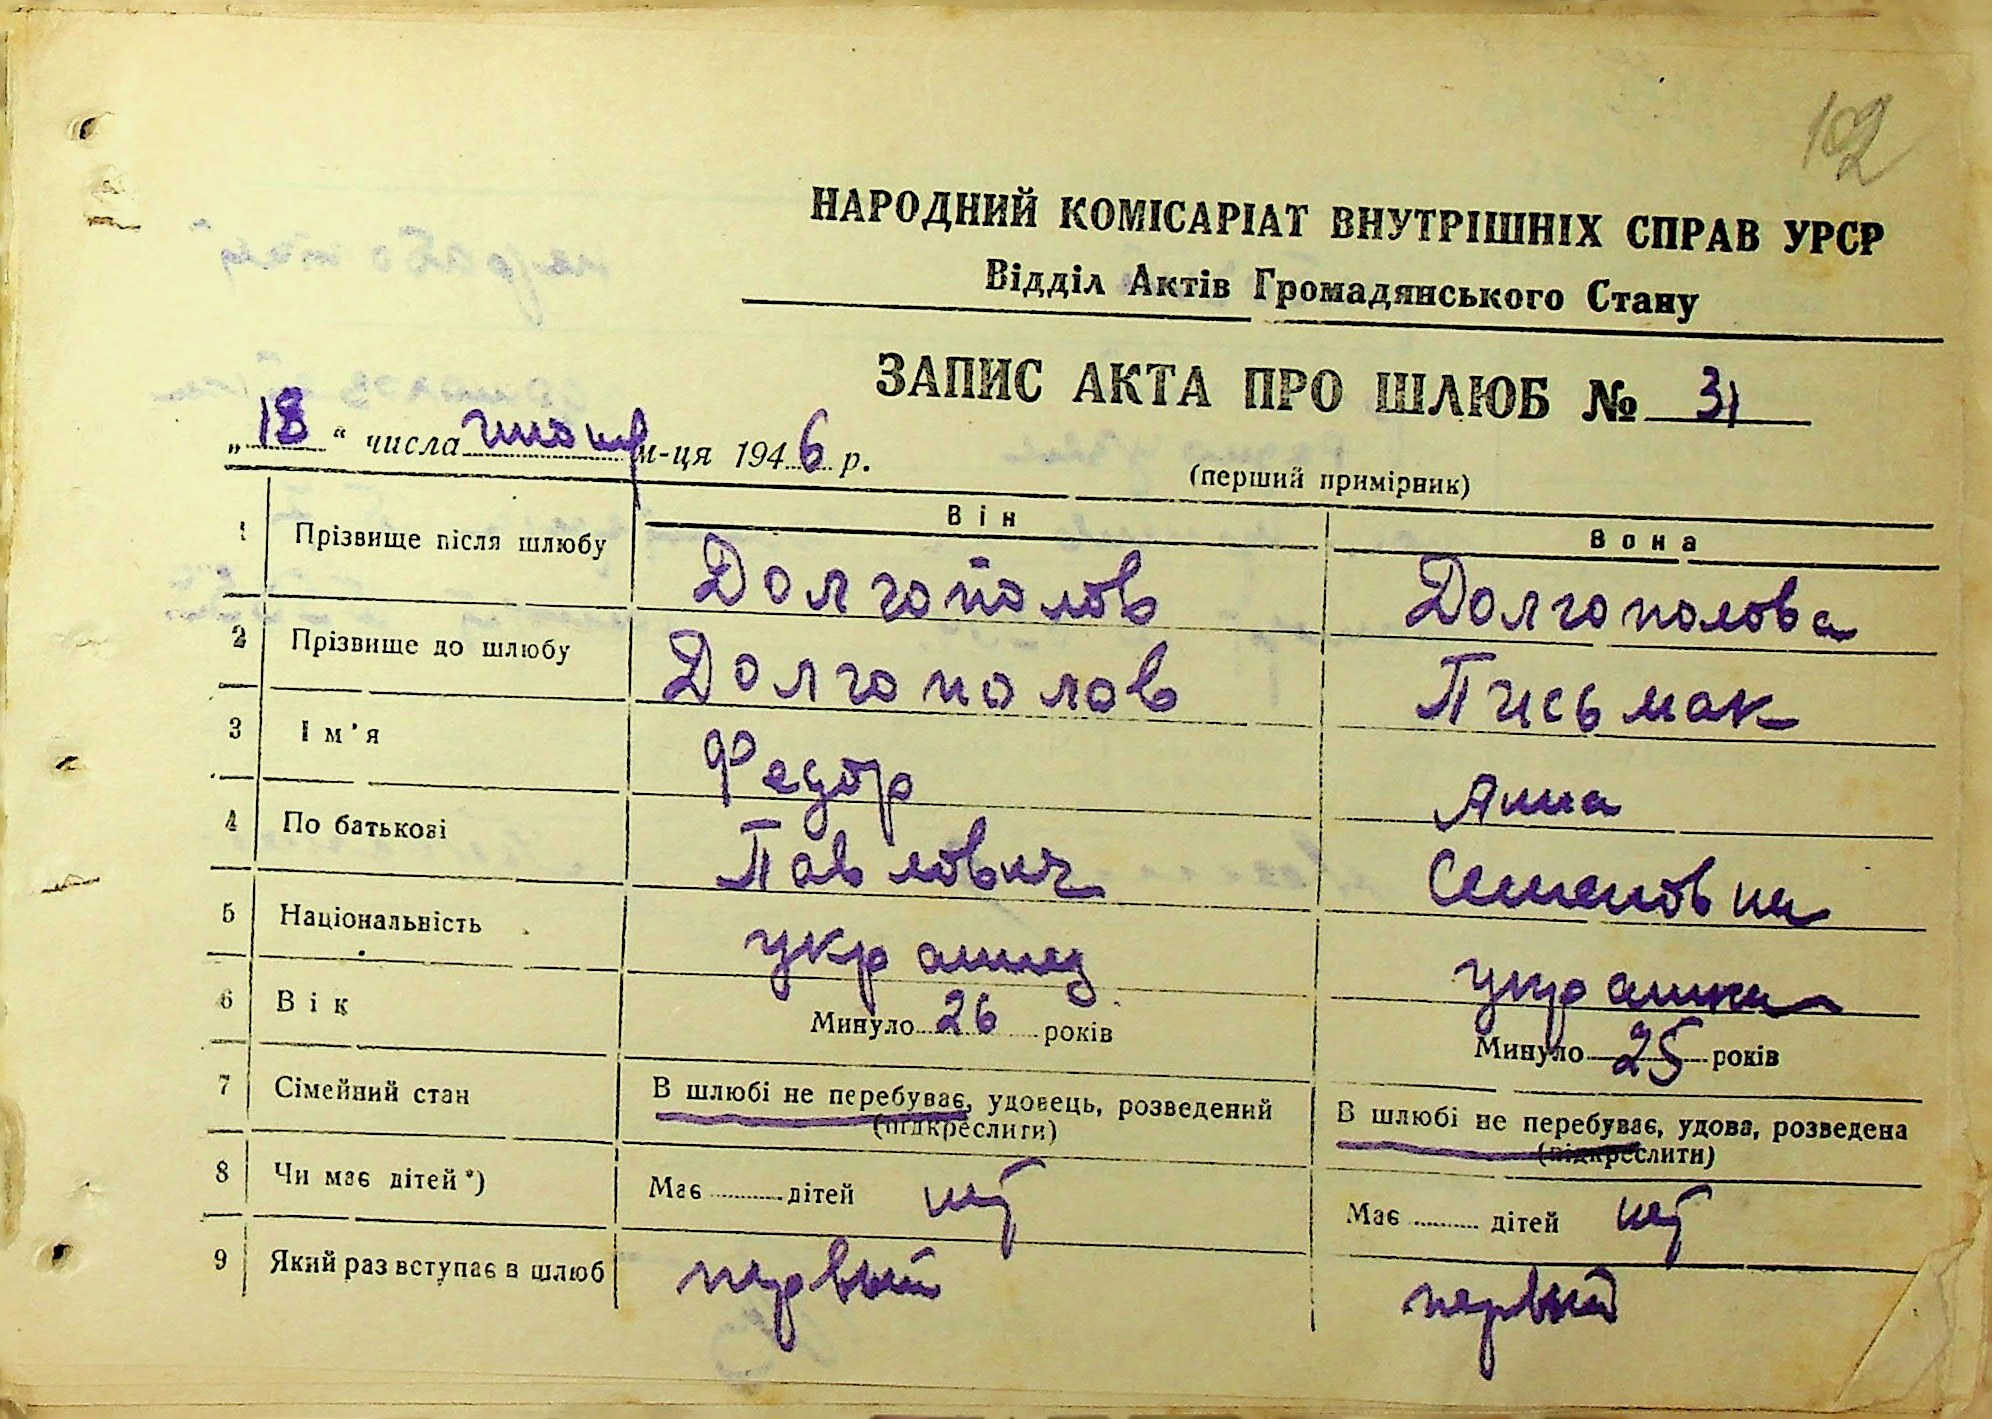 102
НАРОДНИЙ КОМІСАРІАТ ВНУТРІШНІХ СПРАВ УРСР
Відділ Актів Громадянського Стану
ЗАПИС АКТА ПРО ШЛЮБ № 31
„18“ числа м-ця 1946 р.
(перший примірник)
Він Вона
1 Прізвище після шлюбу Долгополов Долгополова
2 Прізвище до шлюбу Долгополов Письмак
3 Ім'я Федор Анна
4 По батькові Павлович Семеновна
5 Національність украинец украинка
6 Вік Минуло 26 років Минуло 25 років
7 Сімейний стан В шлюбі не перебуває, удовець, розведений В шлюбі не перебуває, удова, розведена
(підкреслити) (підкреслити)
8 Чи має дітей*) Має дітей нет Має дітей нет
9 Який раз вступає в шлюб первый первый